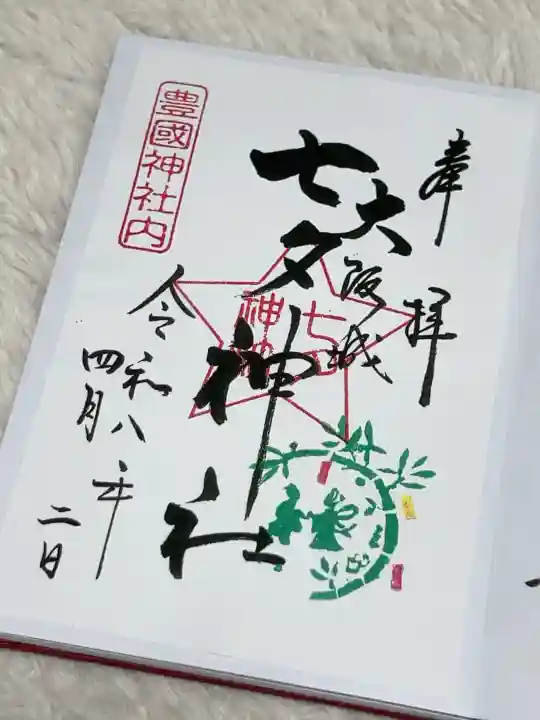 奉拝
大阪城
七夕神社
令和八年
四月二日
豊國神社内
七夕
神社